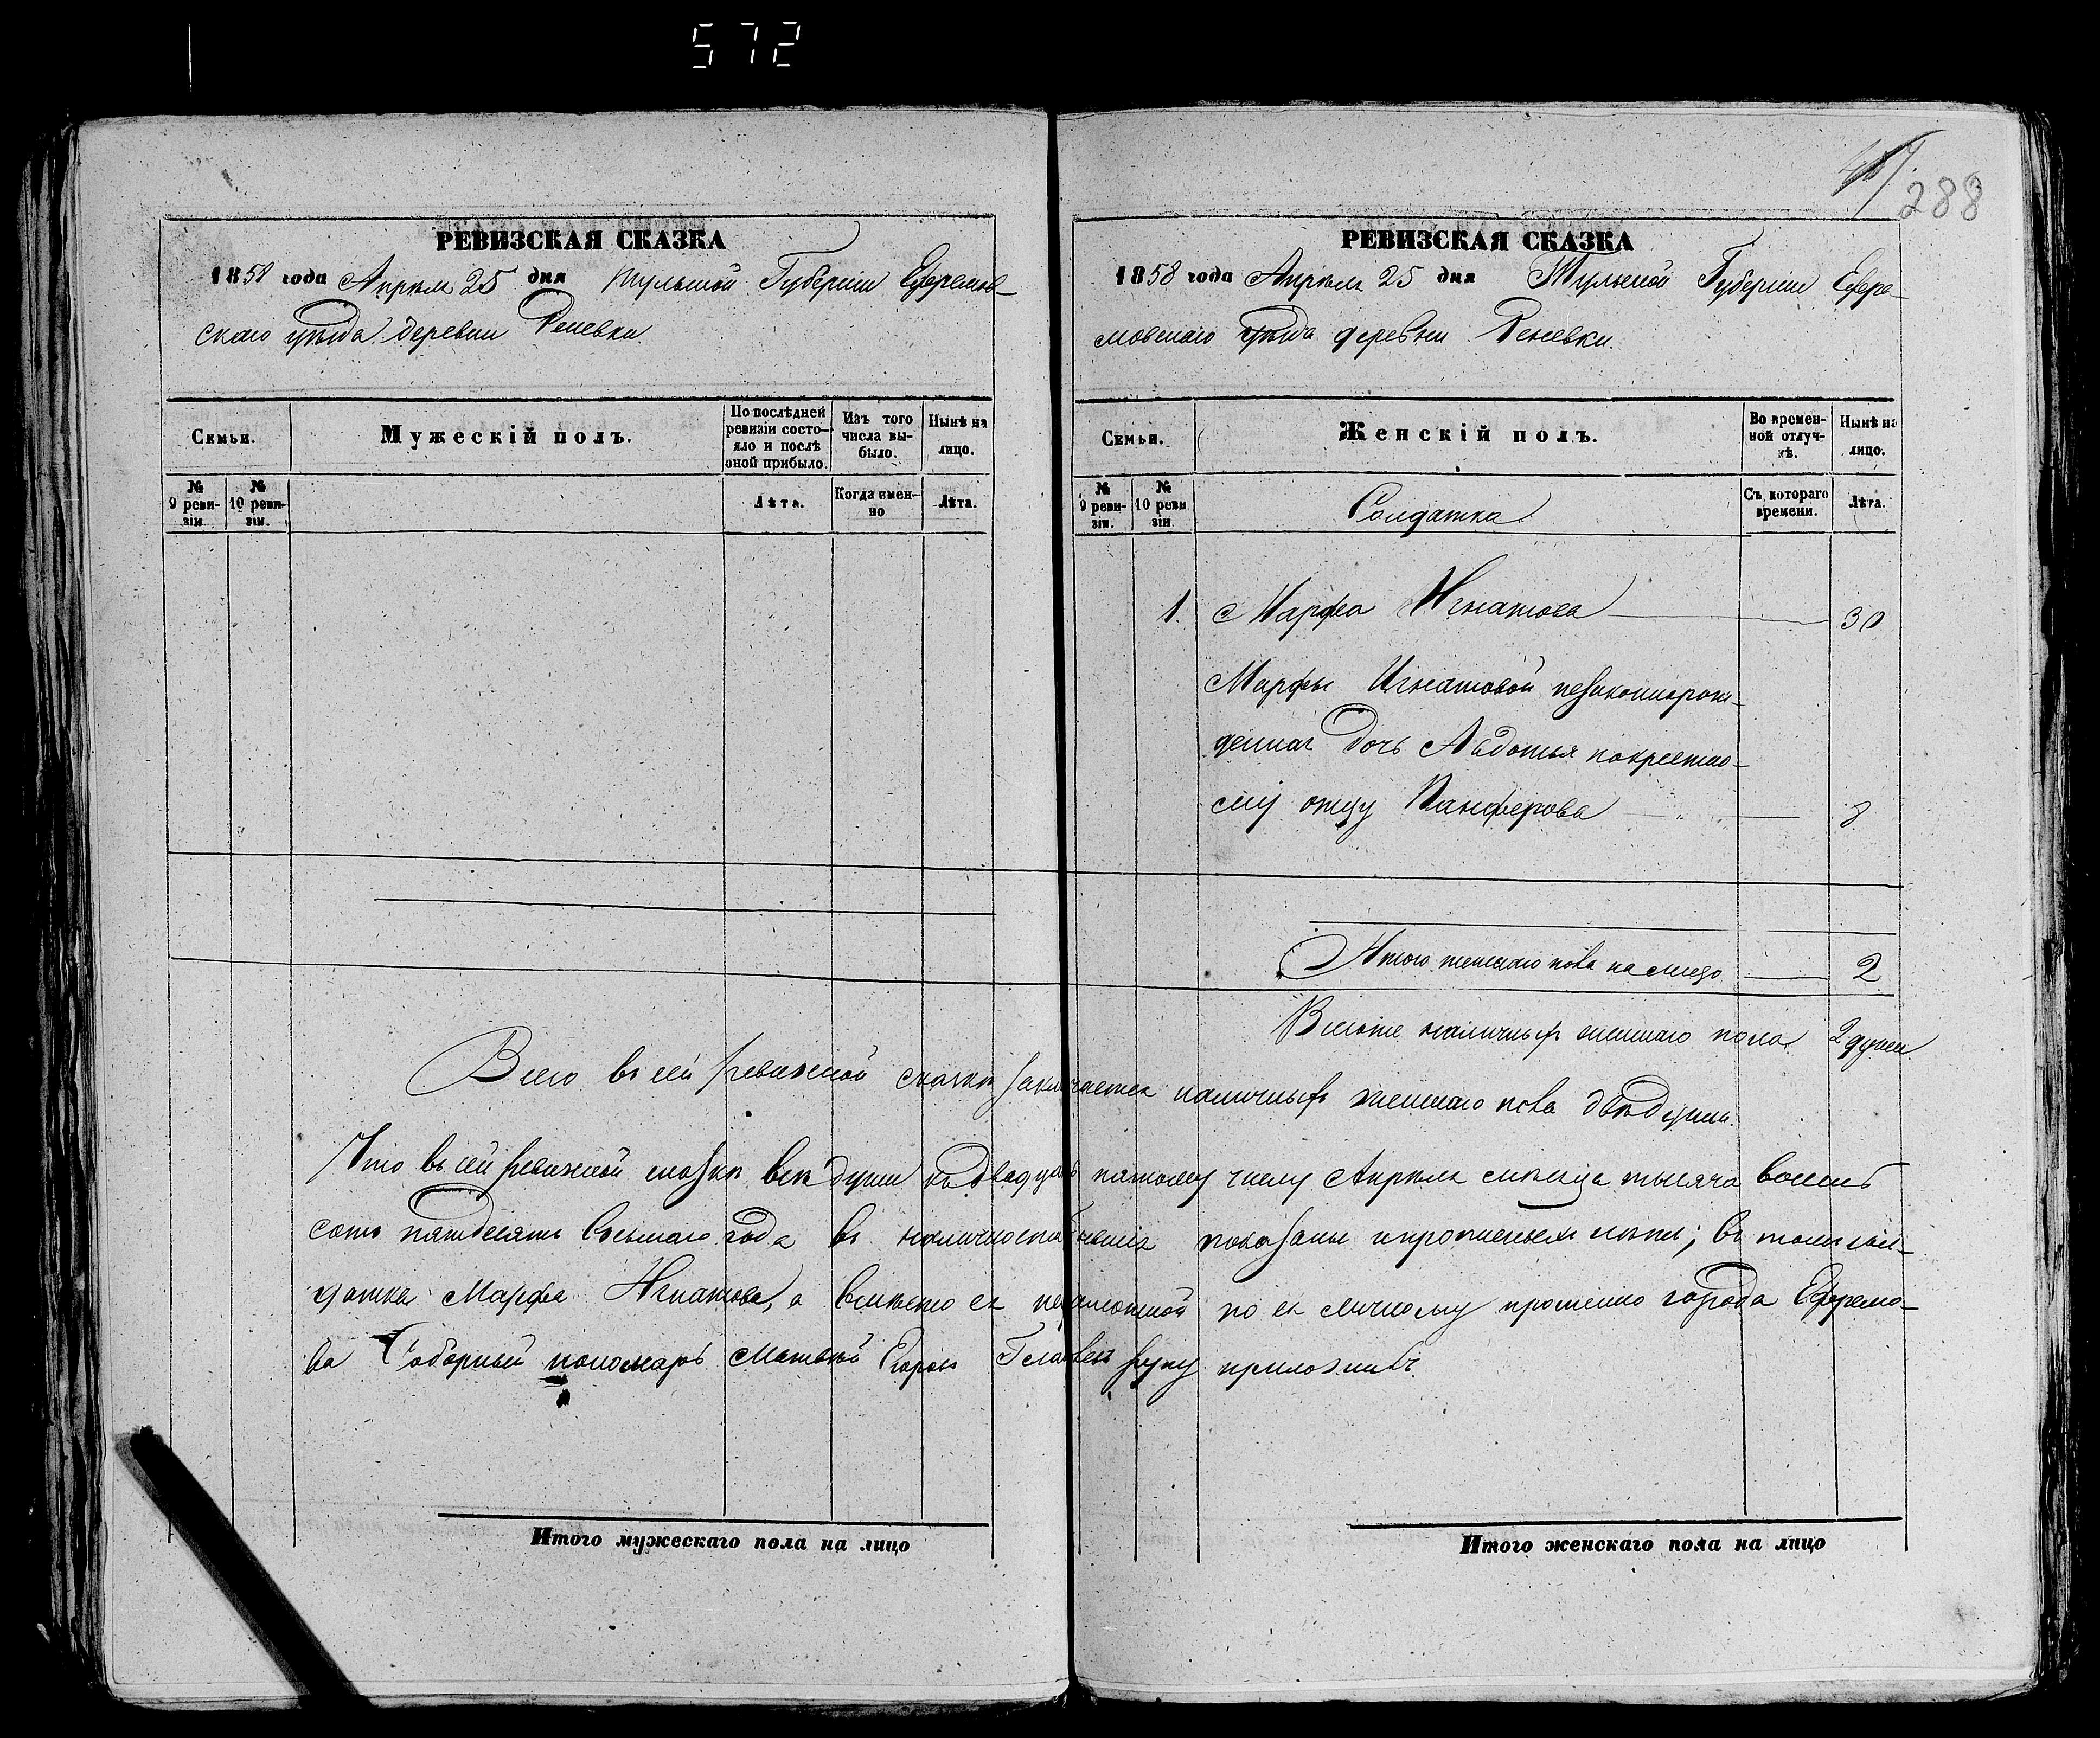 572
288
РЕВИЗСКАЯ СКАЗКА
1858 года Апрѣля 25 дня Тульской Губерніи Ефремов-
скаго уѣзда деревни Реневки
Семьи.
Мужескій полъ.
По послѣдней ревизіи состо-яло и послѣ оной прибыло.
Изъ того числа вы-было.
Нынѣ на лицо.
№ 9 реви-зіи.
№ 10 реви-зіи.
Лѣта.
Когда имен-но
Лѣта.
РЕВИЗСКАЯ СКАЗКА
1858 года Апрѣля 25 дня Тульской Губерніи Ефре-
мовскаго уѣзда деревни Реневки
Семьи.
Женскій полъ.
Во времен-ной отлуч-кѣ.
Нынѣ на лицо.
№ 9 реви-зіи.
№ 10 реви зіи.
Солдатка
Съ котораго времени.
Лѣта.
1. Марфа Игнатова 30
Марфы Игнатовой незаконнорож-
денная дочь Авдотья покрестно-
му отцу Панферова 8
Итого женскаго пола на лицо 2
Вмѣсте наличныхъ женскаго пола 2 души
Всего в сей ревизской сказке заключается наличныхъ женскаго пола двѣ души.
Что въ сей ревизской сказкѣ всѣ души къ двадцать пятому числу Апрѣля месяца тысяча восемь
сотъ пятдесятъ восьмаго года въ наличности показаны и прописныхъ нѣтъ; въ томъ сол-
датка Марфа Игнатова, а вмѣсто ея неграмотной по ея личному прошенію города Ефремо-
ва Соборный пономарь Матвѣй Егоровъ руку приложилъ
Итого мужескаго пола на лицо
Итого женскаго пола на лицо